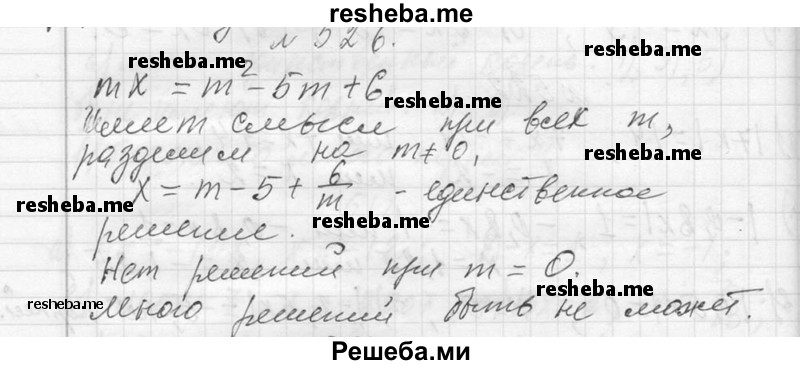 resheba.me
№ 526.
resheba.me resheba.me
mx = m² - 5m + 6 resheba.me
Имеет смысл при всех m,
разделим на m ≠ 0,
x = m - 5 + 6/m - единственное
resheba.me resheba.me
решение.
Нет решений при m = 0.
resheba.me resheba.me
Много решений быть не может.
resheba.me
Решеба.ми